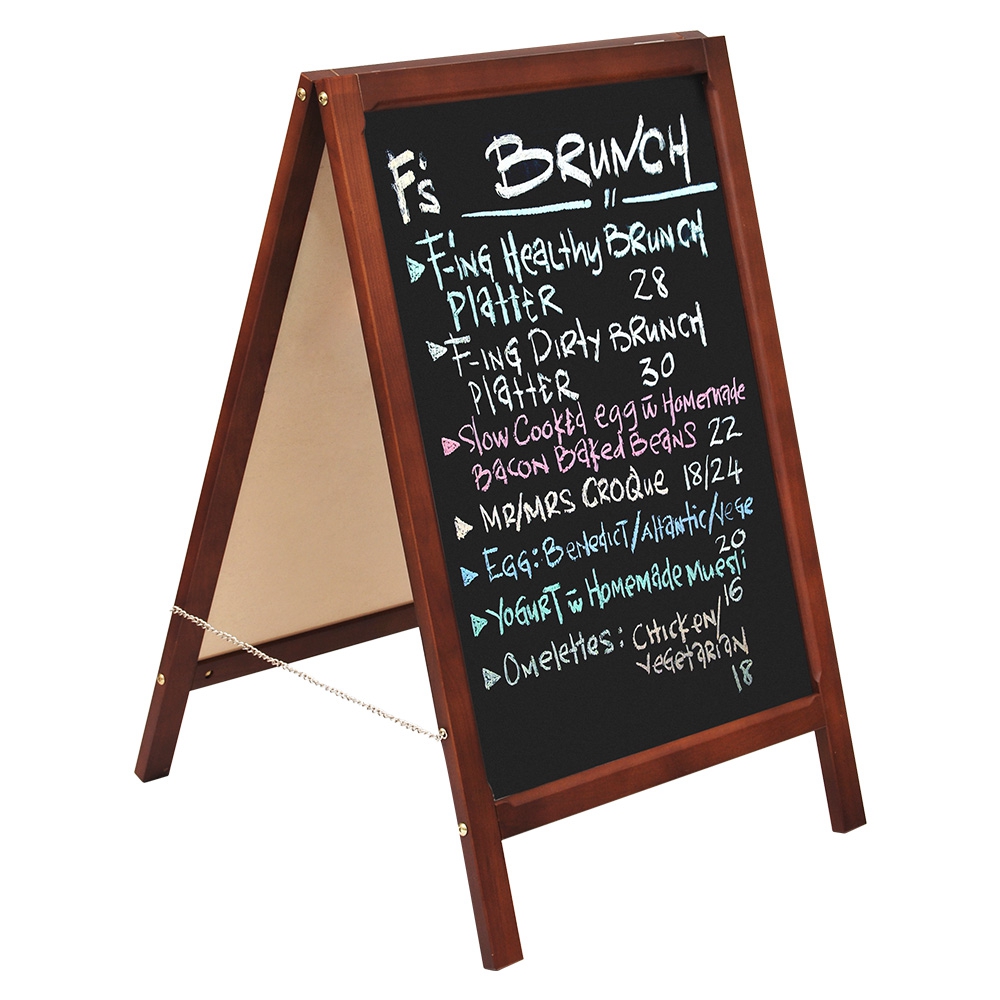 F's BRUNCH
F'ING HEALTHY BRUNCH
PLATTER 28
F-ING DIRTY BRUNCH
PLATTER 30
Slow Cooked egg w̄ Homemade
BACON Baked BEANS 22
MR/MRS CROQUE 18/24
EGG: Benedict/Atlantic/vege
20
YOGURT w̄ Homemade Muesli
16
Omelettes: CHICKEN/
VEGETARIAN
18